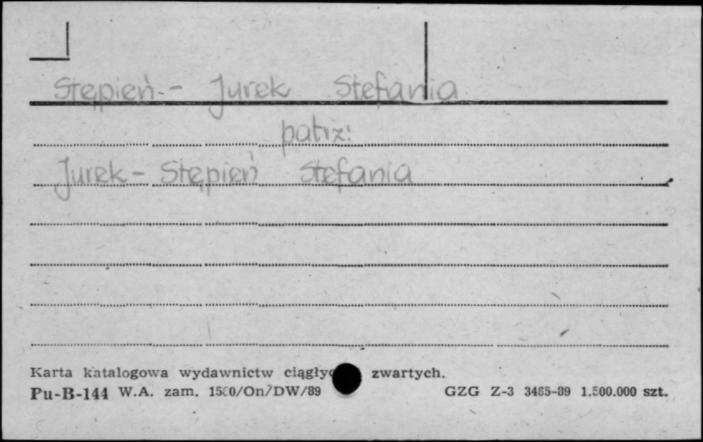 Stępień-- Jurek Stefania
patrz:
Jurek- Stępień Stefania
Karta katalogowa wydawnictw zwartych.
Pu-B-144 W.A. zam. /On/DW/89 GZG Z-3 3485-89 1.500.000 szt.